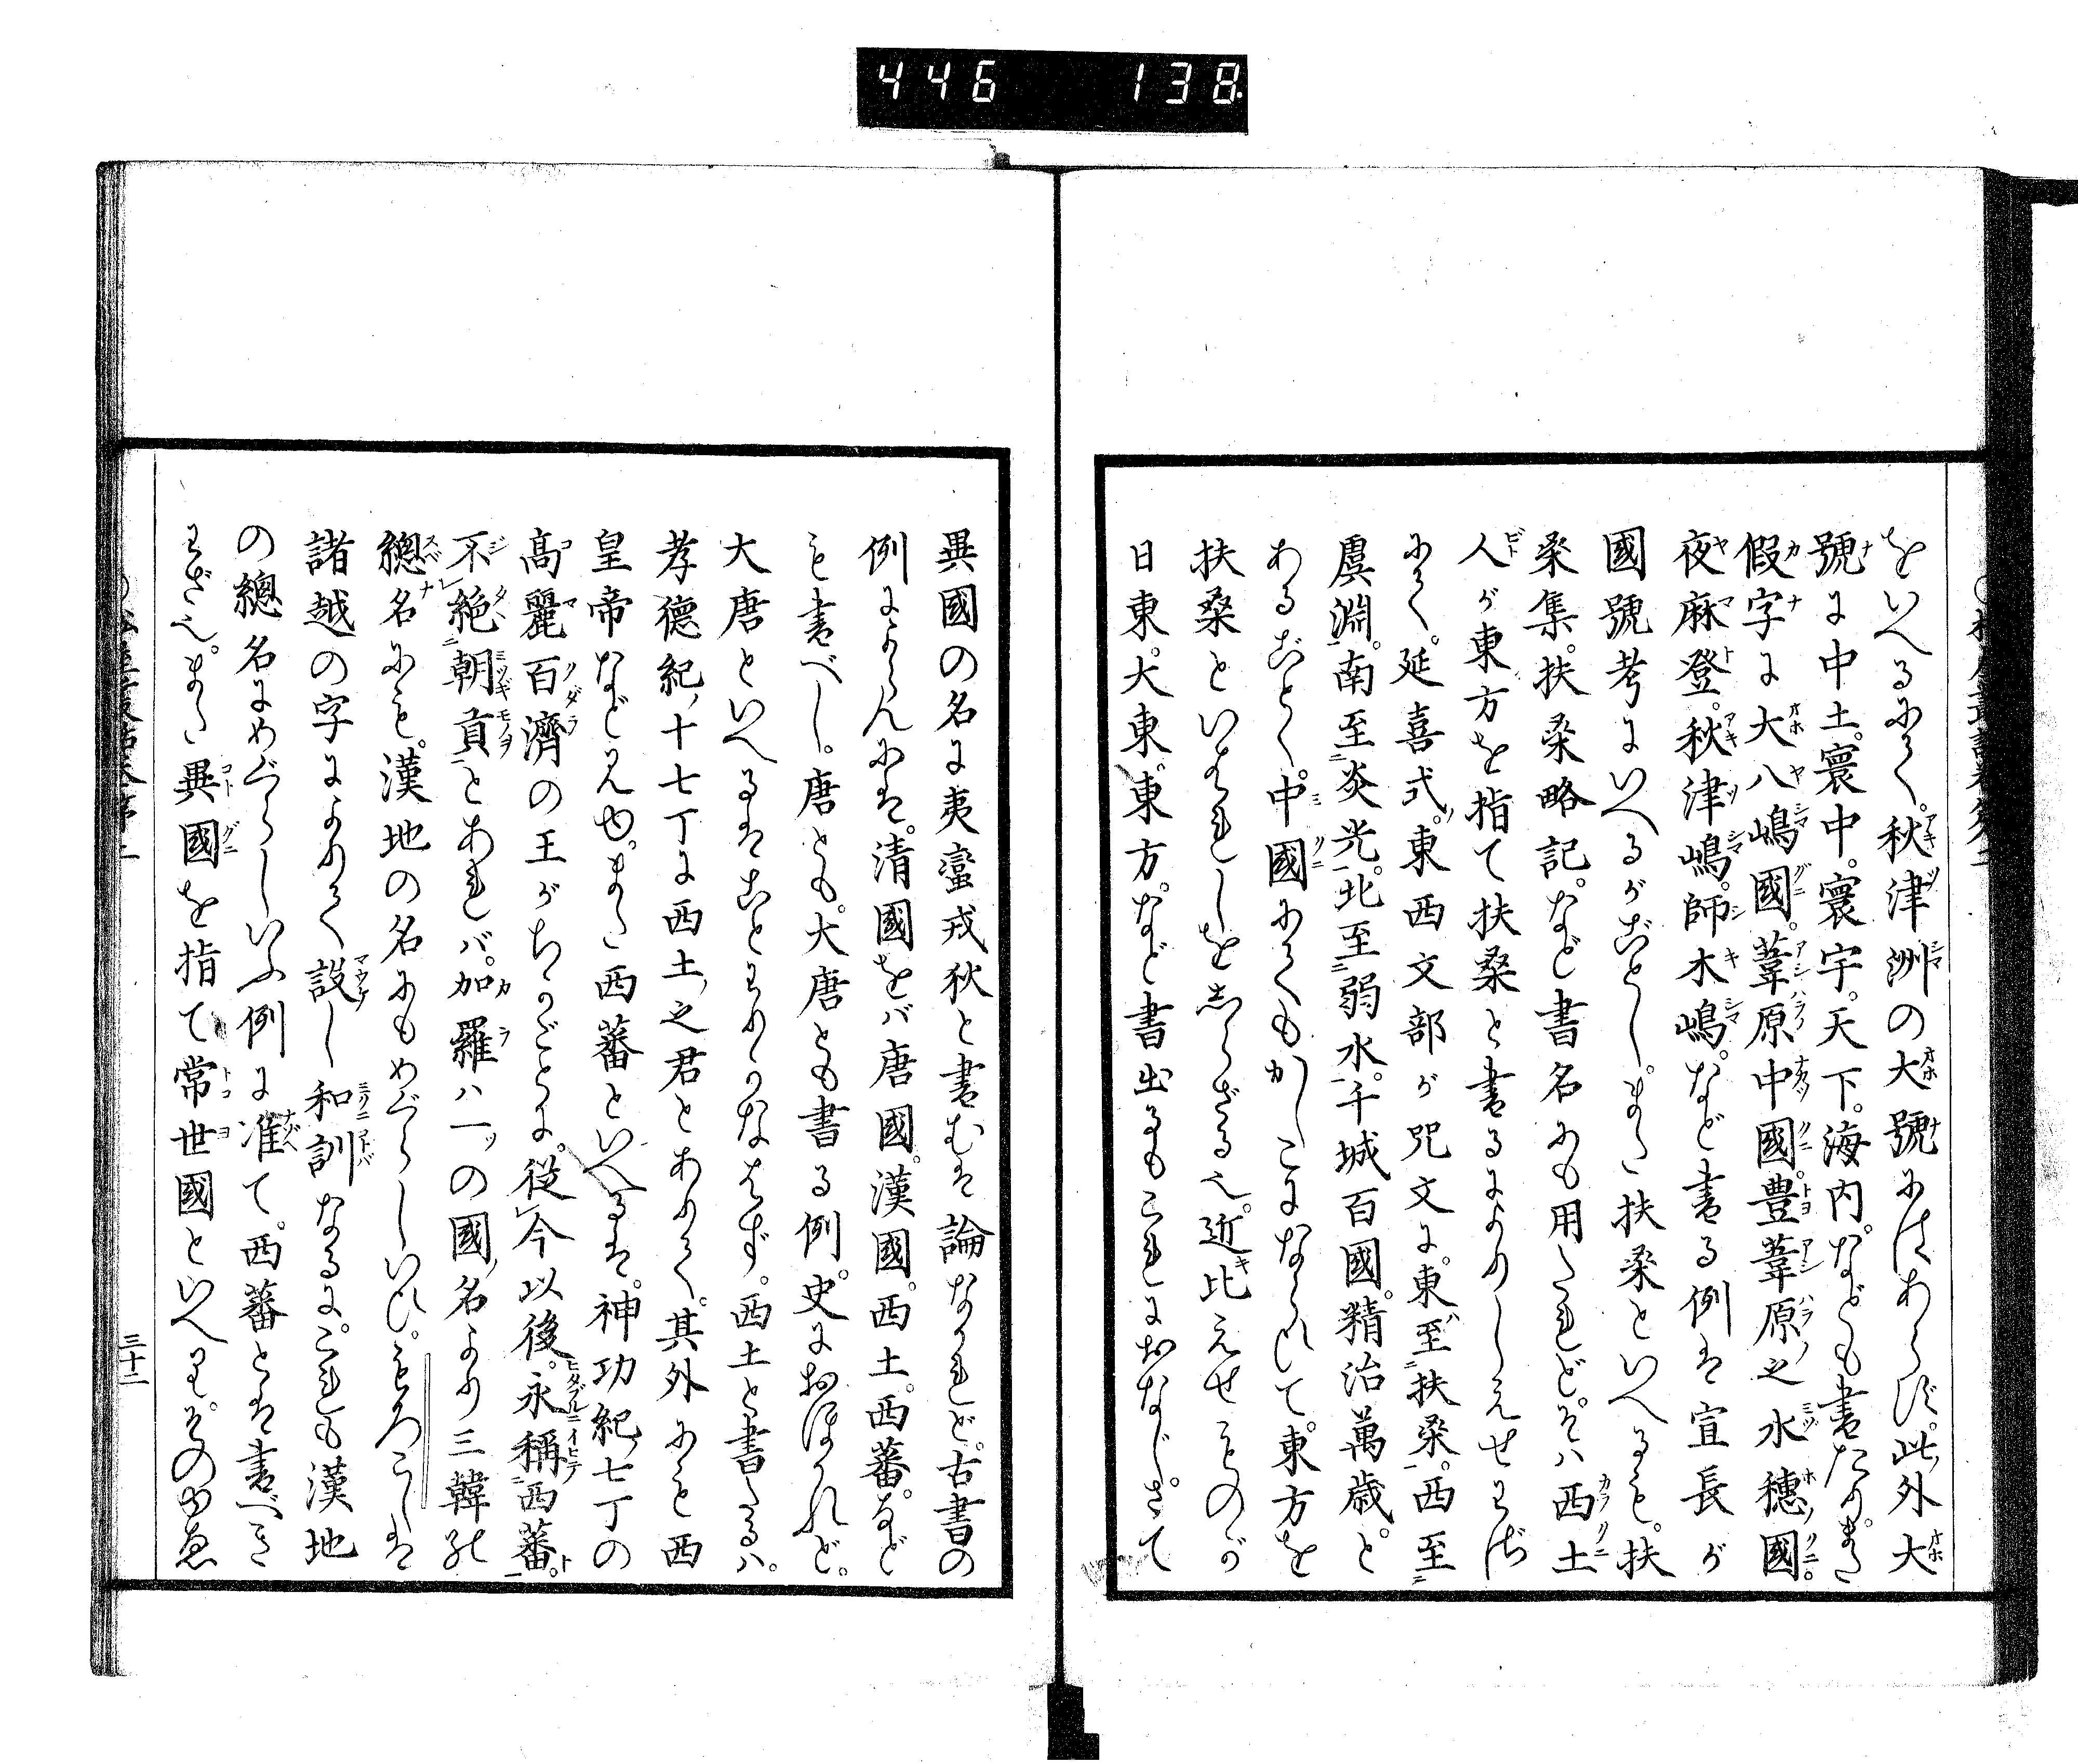 446 138
をいへるにて。秋津洲の大號にはあらず。此外大
號に中土。寰中。寰宇。天下。海内。なども書たり。また
假字に大八嶋國。葦原中國。豊葦原之水穂國。
夜麻登。秋津嶋。師木嶋。など書る例は宣長が
國號考にいへるがごとし。また扶桑といへるも。扶
桑集。扶桑略記。など書名にも用たれど。そハ西土
人が東方を指て扶桑と書るによりしえせわざ
にて。延喜式。東西文部が咒文に。東至扶桑。西至
虞淵。南至炎光。北至弱水。千城百國。精治萬歳。と
あるごとく。中國にてもかしこにならひて。東方を
扶桑といはれしをしらざる也。近比えせものが
日東。大東。東方。など書出るもこれにおなじ。さて
異國の名に夷蠻戎狄と書むは論なけれど。古書の
例によらんには。清國をバ唐國。漢國。西土。西蕃。など
も書べし。唐とも。大唐とも書る例。史におほかれど。
大唐といへるはことわりかなはず。西土と書たるハ。
孝德紀十七丁に西土之君とありて。其外にも西
皇帝など見ゆ。また西蕃といへるは。神功紀七丁の
高麗百濟の王がちかごとに。從今以後。永稱西蕃。
不絶朝貢とあれバ。加羅ハ一ツの國名より三韓の
總名にも。漢地の名にもめぐらしいひ。もろこしは
諸越の字によりて設し和訓なるに。これも漢地
の總名にめぐらしいふ例に准て。西蕃とは書べき
わざ也。また異國を指て常世國といへり。そのゆゑ
三十二